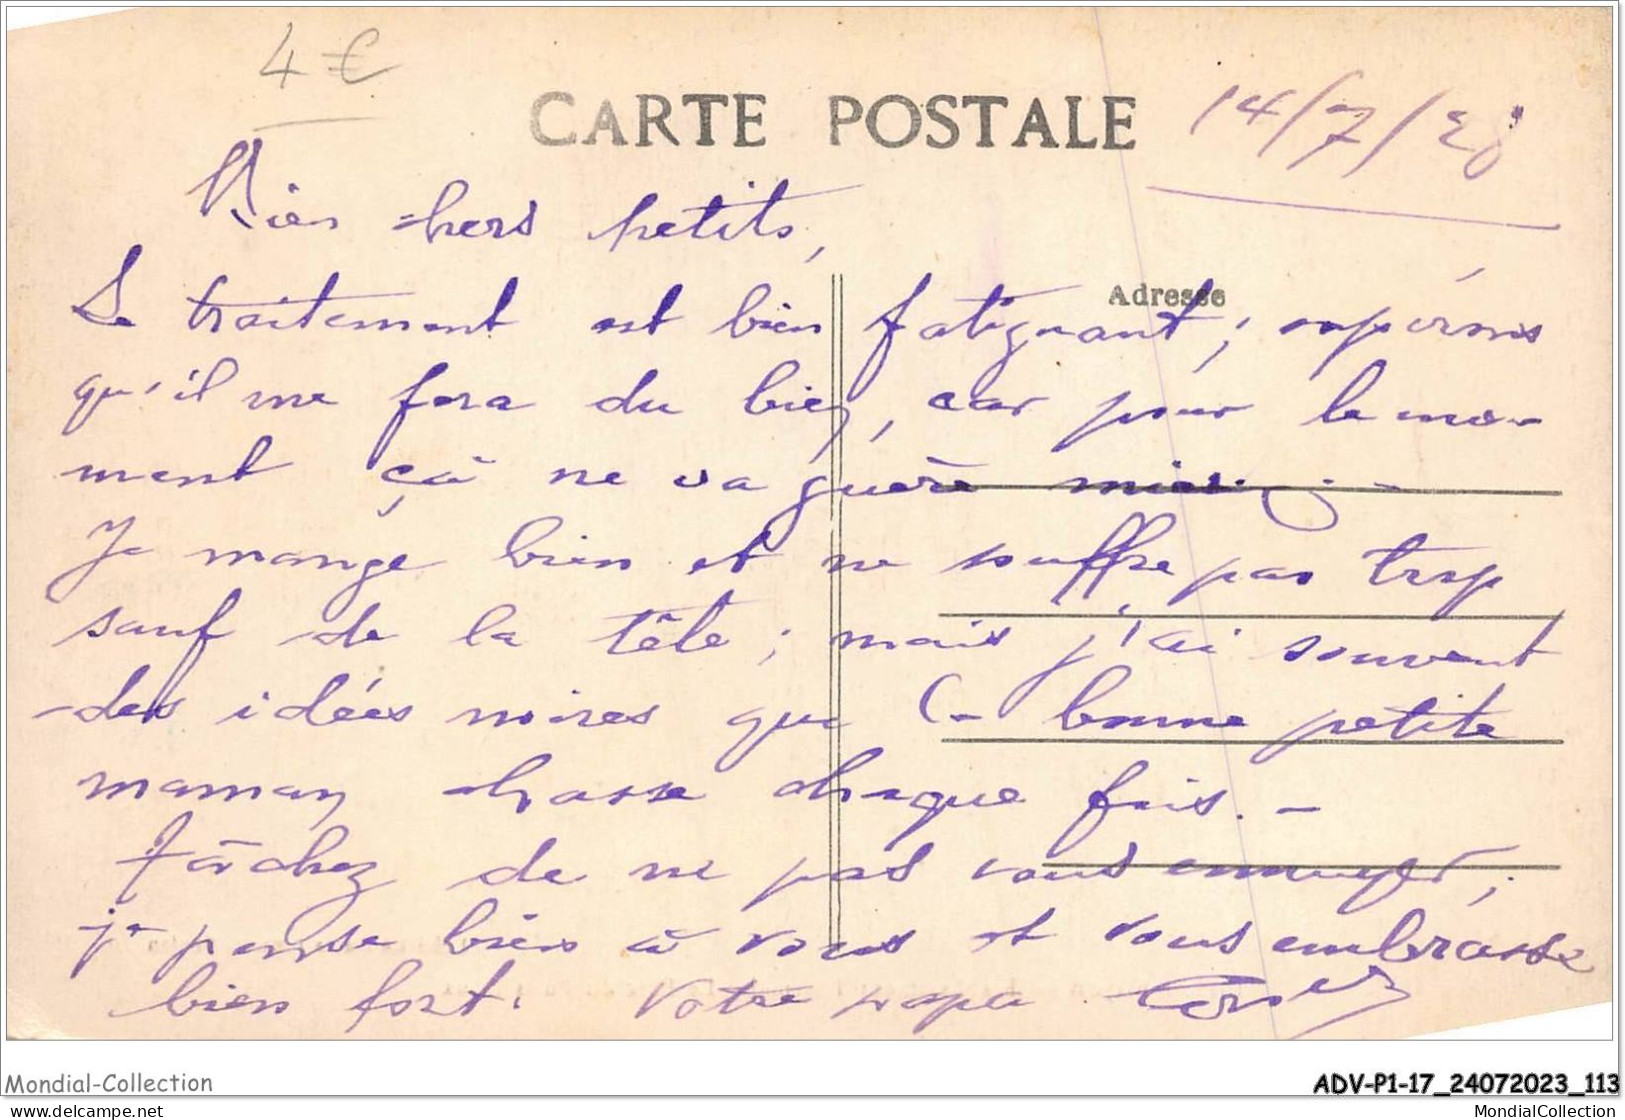 4 €
CARTE POSTALE
14/7/28
Mes chers petits,
Adresse
Le traitement est bien fatiguant ; espérons
qu'il me fera du bien, car pour le mo-
ment çà ne va guère mieux. -
Je mange bien et ne souffre pas trop
sauf de la tête ; mais j'ai souvent
des idées noires que la bonne petite
maman chasse chaque fois. -
Tâchez de ne pas vous ennuyer,
je pense bien à vous et vous embrasse
bien fort. Votre papa
Mondial-Collection
ADV-P1-17_24072023_113
www.delcampe.net
MondialCollection